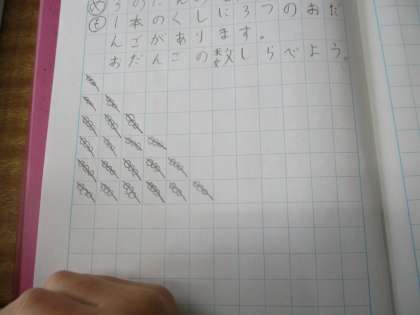 1本のくしに3つのおだ
んごがあります。
おだんごの数しらべよう。